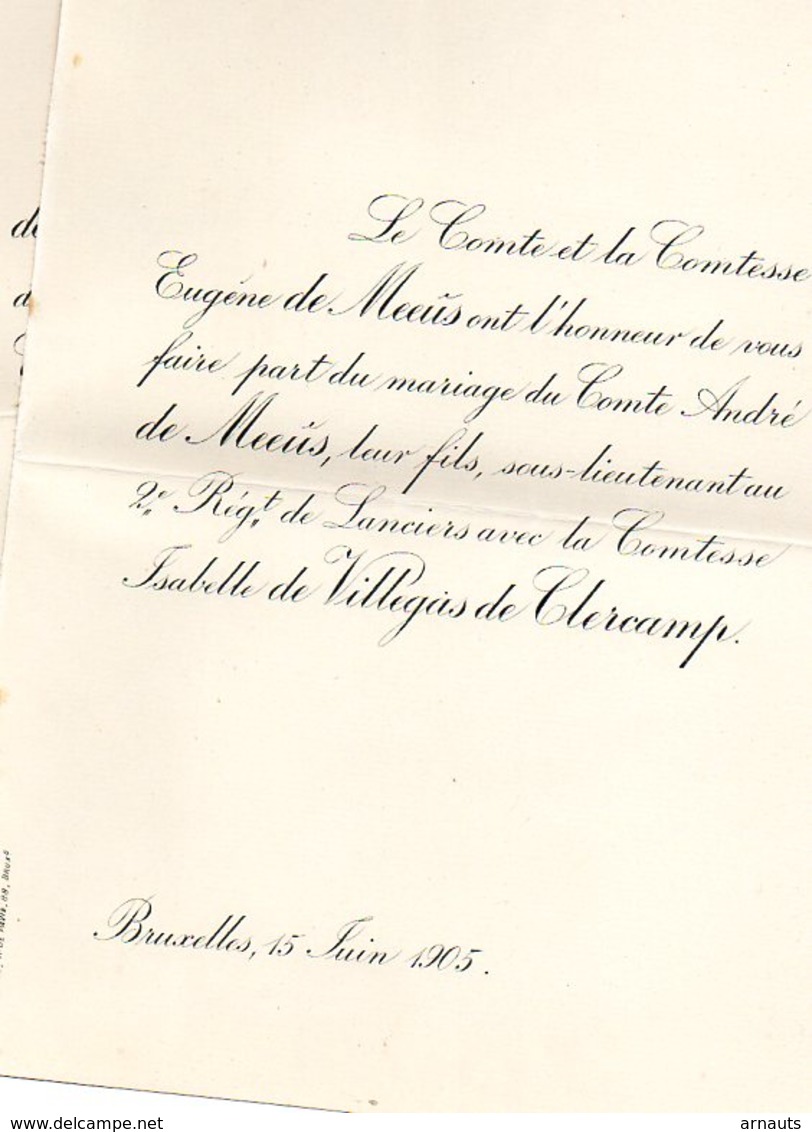 Le Comte et la Comtesse
Eugène de Meeûs ont l'honneur de vous
faire part du mariage du Comte André
de Meeûs, leur fils, sous-lieutenant au
2e Régt de Lanciers avec la Comtesse
Isabelle de Villegas de Clercamp.
Bruxelles, 15 Juin 1905.
delcampe.net
arnauts